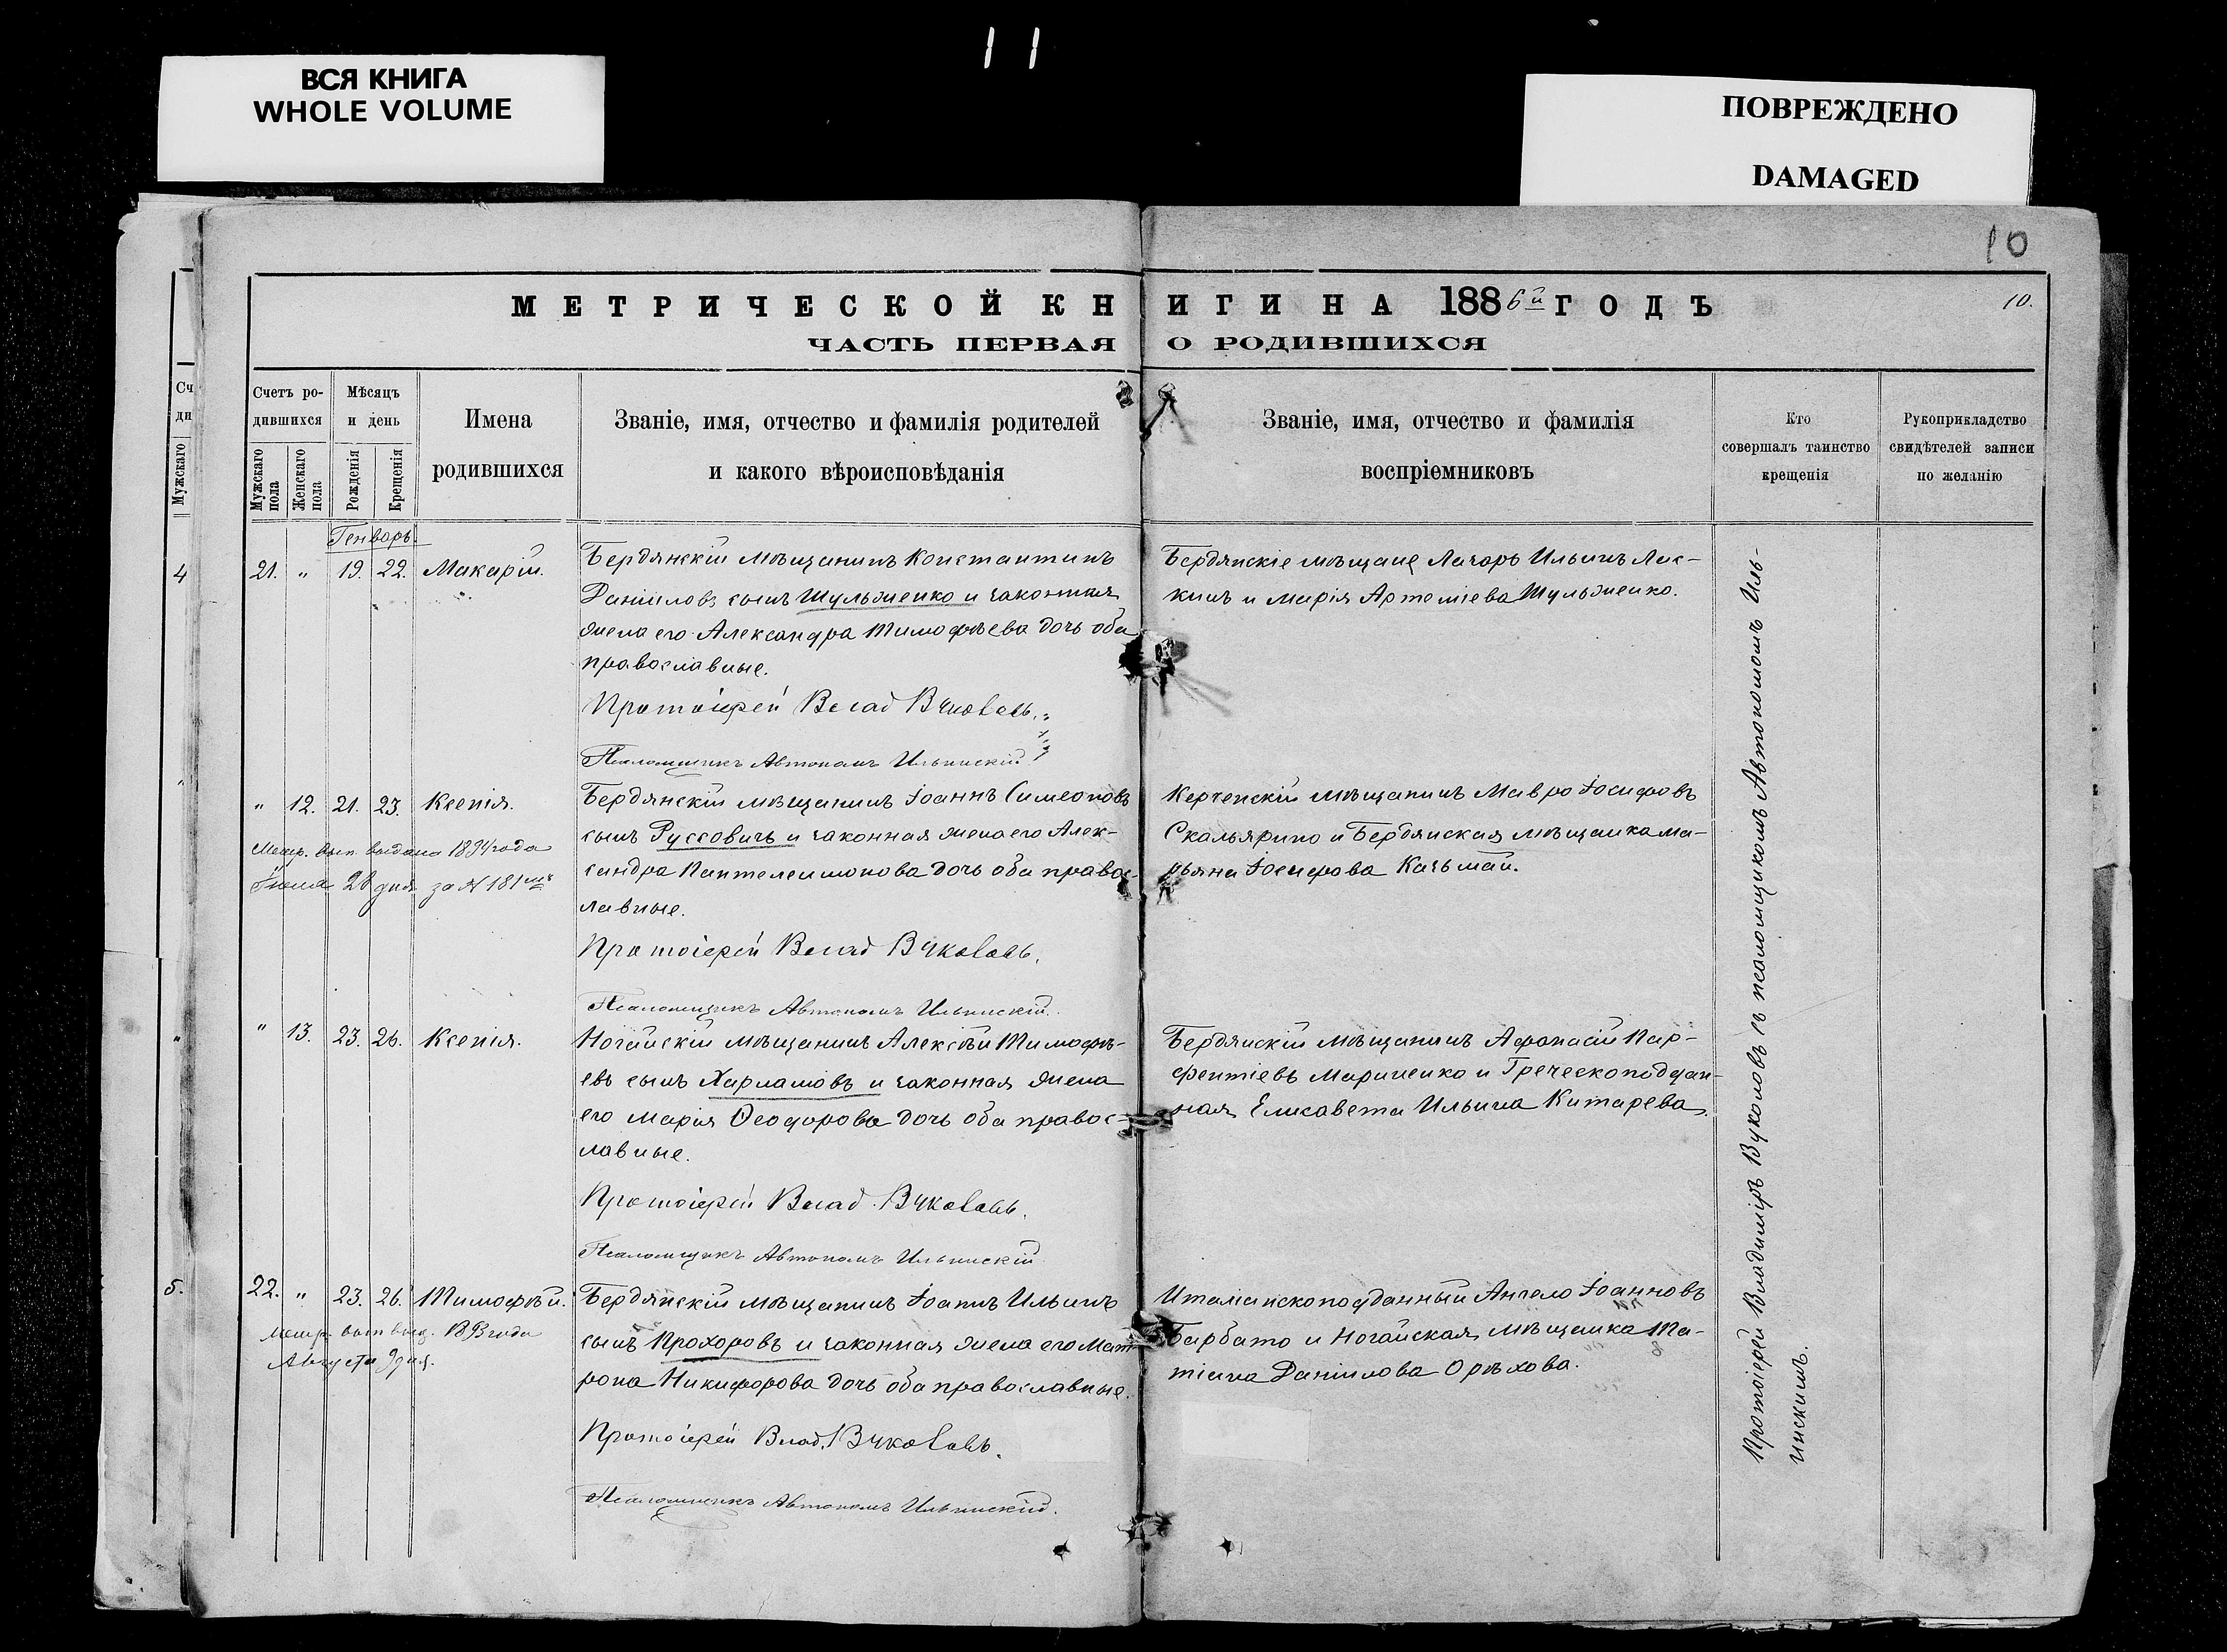 11
ВСЯ КНИГА
WHOLE VOLUME
ПОВРЕЖДЕНО
DAMAGED
10
МЕТРИЧЕСКОЙ КНИГИ НА 1886й ГОДЪ
10.
ЧАСТЬ ПЕРВАЯ О РОДИВШИХСЯ
Счетъ ро-
дившихся
Мужскаго пола
Женскаго пола
Мѣсяцъ
и день
Рожденія
Крещенія
Имена
родившихся
Званіе, имя, отчество и фамилія родителей
и какого вѣроисповѣданія
Званіе, имя, отчество и фамилія
воспріемниковъ
Кто
совершалъ таинство
крещенія
Рукоприкладство
свидѣтелей записи
по желанію
Сч
ди
Мужскаго
4
5.
Генварь.
21. " 19. 22. Макарій.
Бердянскій мѣщанинъ Константинъ
Даніиловъ сынъ Шульженко и законная
жена его Александра Тимофѣева дочь оба
православные.
Протоіерей Влад Вуколовъ.
Псаломщикъ Автономъ Ильинскій
Бердянскіе мѣщане Лазарь Ильинъ
и Марія Артеміева Шульженко.
" 12. 21. 23. Ксенія.
Метр. вып. выдана 1894 года
Іюня 28 дня за № 181мъ
Бердянскій мѣщанинъ Іоаннъ Симеоновъ
сынъ Руссовичъ и законная жена его Алек-
сандра Пантелеимонова дочь оба правос-
лавные.
Протоіерей Влад Вуколовъ.
Псаломщикъ Автономъ Ильинскій.
Керченскій мѣщанинъ Мавро Іосифовъ
Скальярино и Бердянская мѣщанка Ма-
рьяна Іосифова Казьмай.
" 13. 23. 26. Ксенія.
Ногайскій мѣщанинъ Алексѣй Тимофѣ-
евъ сынъ Харламовъ и законная жена
его Марія Ѳеодорова дочь оба правос-
лавные.
Протоіерей Влад. Вуколовъ.
Псаломщикъ Автономъ Ильинскій
Бердянскій мѣщанинъ Афанасій Пар-
фентіевъ Мариненко и Греческоподдан-
ная Елисавета Ильина Китарева.
22. " 23. 26. Тимофѣй.
Метр. вып. выд. года
Августа 9 дня.
Бердянскій мѣщанинъ Іоаннъ Ильинъ
сынъ Прохоровъ и законная жена его Мат
рона Никифорова дочь оба православные.
Протоіерей Влад. Вуколовъ.
Псаломщикъ Автономъ Ильинскій.
Италіанскоподданный Ангело Іоанновъ
Барбато и Ногайская мѣщанка Та-
тіана Даніилова Орѣхова.
Протоіерей Владиміръ Вуколовъ съ псаломщикомъ Автономомъ Иль-
инскимъ.